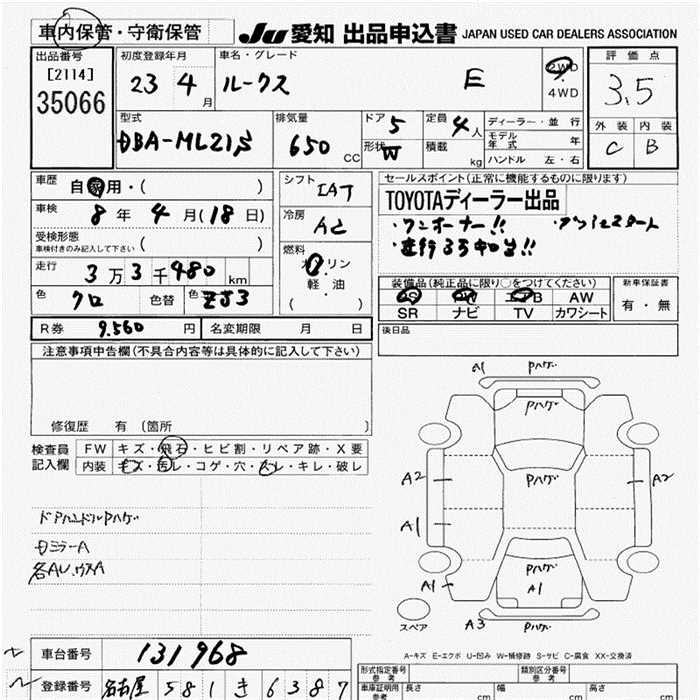 車内保管・守衛保管
JU 愛知 出品申込書 JAPAN USED CAR DEALERS ASSOCIATION
出品番号
[2114]
35066
初度登録年月
23 4月
車名・グレード
ルークス E
2WD
・
4WD
評価点
3.5
外装 内装
C B
型式
DBA-ML21S
排気量
650 CC
ドア 5
形状 W
定員 4人
積載 kg
ディーラー・並行
モデル年式 年
ハンドル 左・右
車歴 自家用・( )
車検 8年 4月(18日)
受検形態
車検付きのみ記入して下さい ( )
走行 3万3千980km
色 クロ 色替 色 ZJ3
シフト IAT
冷房 AC
燃料
ガソリン
軽・油
( )
セールスポイント(正常に機能するものに限ります)
TOYOTAディーラー出品
・ワンオーナー!!
装備品(純正品に限り○をつけてください)
PS PW エアB AW
SR ナビ TV カワシート
新車保証書
有・無
後日品
R券 9.560円 名変期限 月 日
注意事項申告欄(不具合内容等は具体的に記入して下さい)
修復歴 有 〔箇所 〕
検査員
記入欄
FW キズ・飛石・ヒビ割・リペア跡・X要
内装 キズ・汚レ・コゲ・穴・スレ・キレ・破レ
ドアハンドルPハゲ
A1 Pハゲ
Pハゲ
A2 Pハゲ A2
A1
Pハゲ
A1 A1
A3 Pハゲ
スペア
A-キズ E-エクボ U-凹み W-補修跡 S-サビ C-腐食 XX-交換済
車台番号 131968
登録番号 名古屋 581 き 6387
形式指定番号 参考
類別区分番号 参考
車庫証明用 参考
長さ cm 幅 cm 高さ cm